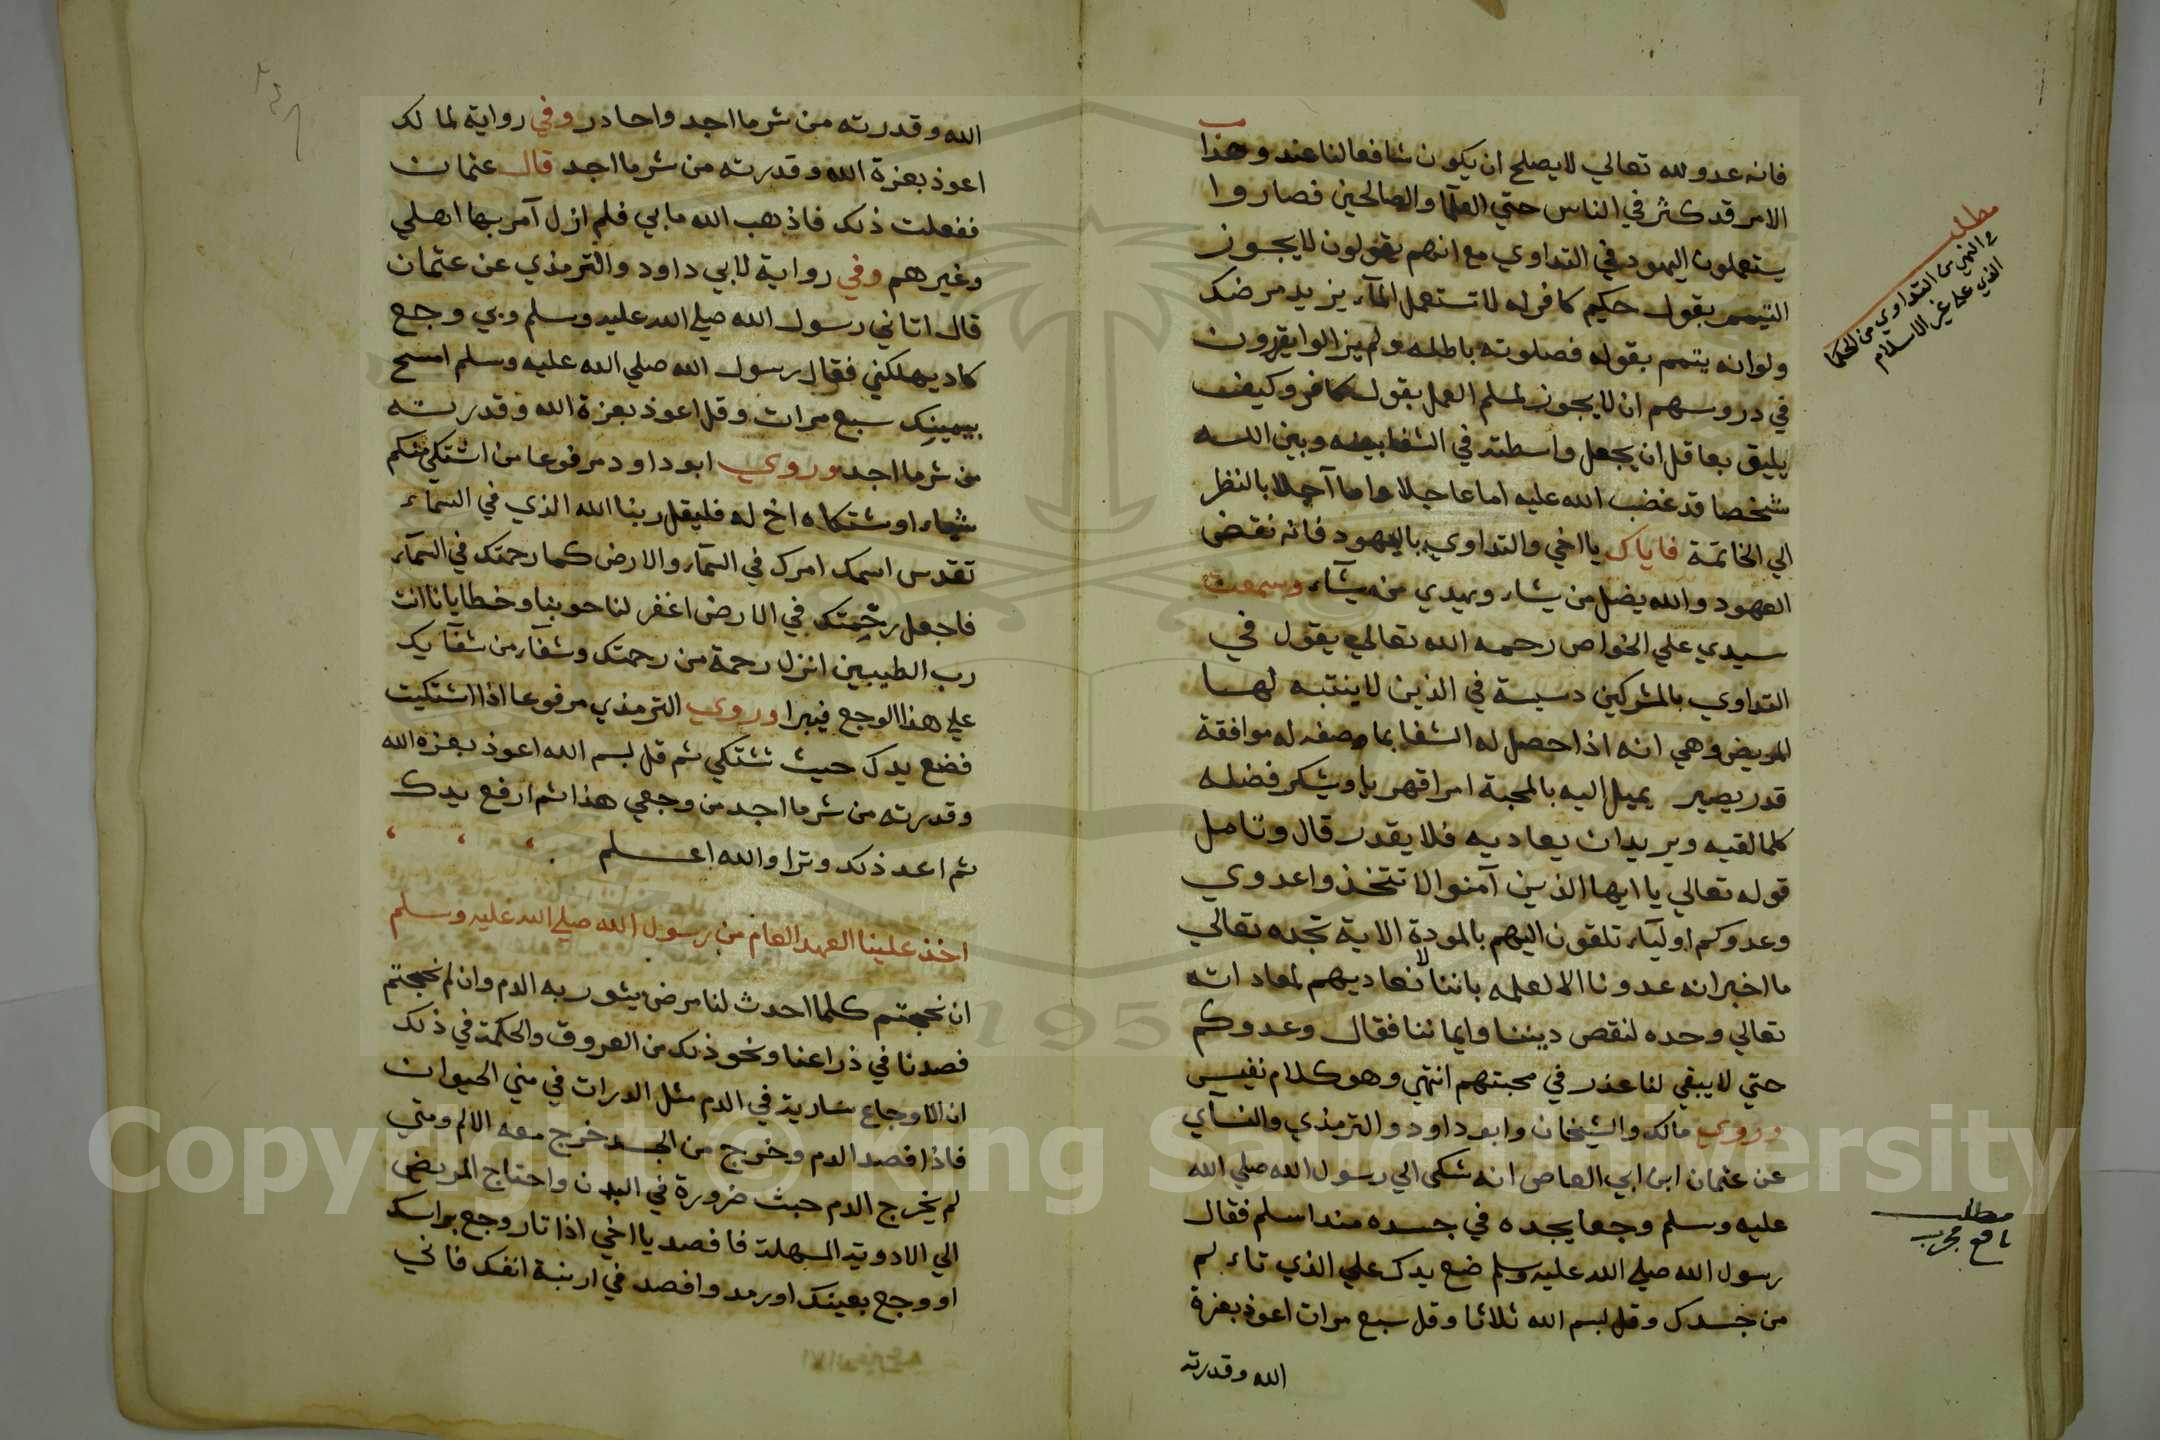 فانه عدو لله تعالي لا يصلح ان يكون شافعا لنا عنده وهذا
الامر قد كثر في الناس حتي العلما والصالحين فصاروا
يستعملون اليهود في التداوي مع انهم يقولون لا يجوز
التيمم بقول حكيم كافر له لا تستعمل المآء يزيد مرضك
ولوانه يتمم بقوله فصلوته باطله ولم يزالوا يقررون
في دروسهم ان لا يجوز لمسلم العمل بقول كافر وكيف
يليق بعاقل ان يجعل واسطته في الشفا بينه وبين الله
شخصا قد غضب الله عليه اما عاجلا واما آجلا بالنظر
الي الخاتمة فاياك يا اخي والتداوي باليهود فانه نقض
العهود والله يضل من يشاء ويهدي من يشآء وسمعت
سيدي علي الخواص رحمه الله تعالي يقول في
التداوي بالمشركين دسيسة في الذين لا ينتبه لها
المريض وهي انه اذا حصل له الشفا بما وصفه له موافقة
قدر يصير يميل اليه بالمحبة امرا قهريا ويشكر فضله
كلما لقيه ويريد ان يعاديه فلا يقدر قال وتامل
قوله تعالي يا ايها الذين آمنوا لا تتخذوا عدوي
وعدوكم اوليآء تلقون اليهم بالمودة الاية تجده تعالي
ما اخبر انه عدونا الا لعلمه باننا لا نعاديهم لمعاداته
تعالي وحده لنقص ديننا وايماننا فقال وعدوكم
حتي لا يبقي لنا عذر في محبتهم انتهي وهو كلام نفيس
وروي مالك والشيخان وابو داود والترمذي والنسآي
عن عثمان ابن ابي العاص انه شكى الي رسول الله صلي الله
عليه وسلم وجعا يجده في جسده منذ اسلم فقال
رسول الله صلي الله عليه وسلم ضع يدك علي الذي تاءلم
من جسدك وقل بسم الله ثلاثا وقل سبع مرات اعوذ بعزة
الله وقدرته
مطلب
في النهي عن التداوي من الحكما
الذي علي غير الاسلام
مطلب
نافع مجرب
الله وقدرته من شر ما اجد واحاذر وفي رواية لمالك
اعوذ بعزة الله وقدرته من شر ما اجد قال عثمان
ففعلت ذلك فاذهب الله ما بي فلم ازل آمر بها اهلي
وغيرهم وفي رواية لابي داود والترمذي عن عثمان
قال اتاني رسول الله صلي الله عليه وسلم وبي وجع
كاد يهلكني فقال رسول الله صلي الله عليه وسلم امسح
بيمينك سبع مرات وقل اعوذ بعزة الله وقدرته
من شر ما اجد وروي ابو داود مرفوعا من اشتكي منكم
شيئا او شتكاه اخ له فليقل ربنا الله الذي في السماء
تقدس اسمك امرك في السمآء والارض كما رحمتك في السمآء
فاجعل رحمتك في الارض اغفر لنا حوبنا وخطايانا انت
رب الطيبين انزل رحمة من رحمتك وشفآء من شفآيك
علي هذا الوجع فيبرا وروي الترمذي مرفوعا اذا اشتكيت
فضع يدك حيث تشتكي ثم قل بسم الله اعوذ بعزه الله
وقدرته من شر ما اجد من وجعي هذا ثم ارفع يدك
ثم اعد ذلك وترا والله اعلم
اخذ علينا العهد العام من رسول الله صلي الله عليه وسلم
ان نحجتم كلما احدث لنا مرض يثور به الدم وان لم نحجتم
فصدنا في ذراعنا ونحو ذلك من العروق والحكمة في ذلك
ان الاوجاع سارية في الدم مثل الدرات في مني الحيوان
فاذا فصد الدم وخرج من الجسد خرج معه الالم ومتي
لم يخرج الدم حبث ضرورة في البدن واحتاج المريض
الي الادوية المسهلة فافصد يا اخي اذا ثار وجع براسك
او وجع بعينك او رمد وافصد في ارنبة انفك فاني
Copyright © King Saud University
1957